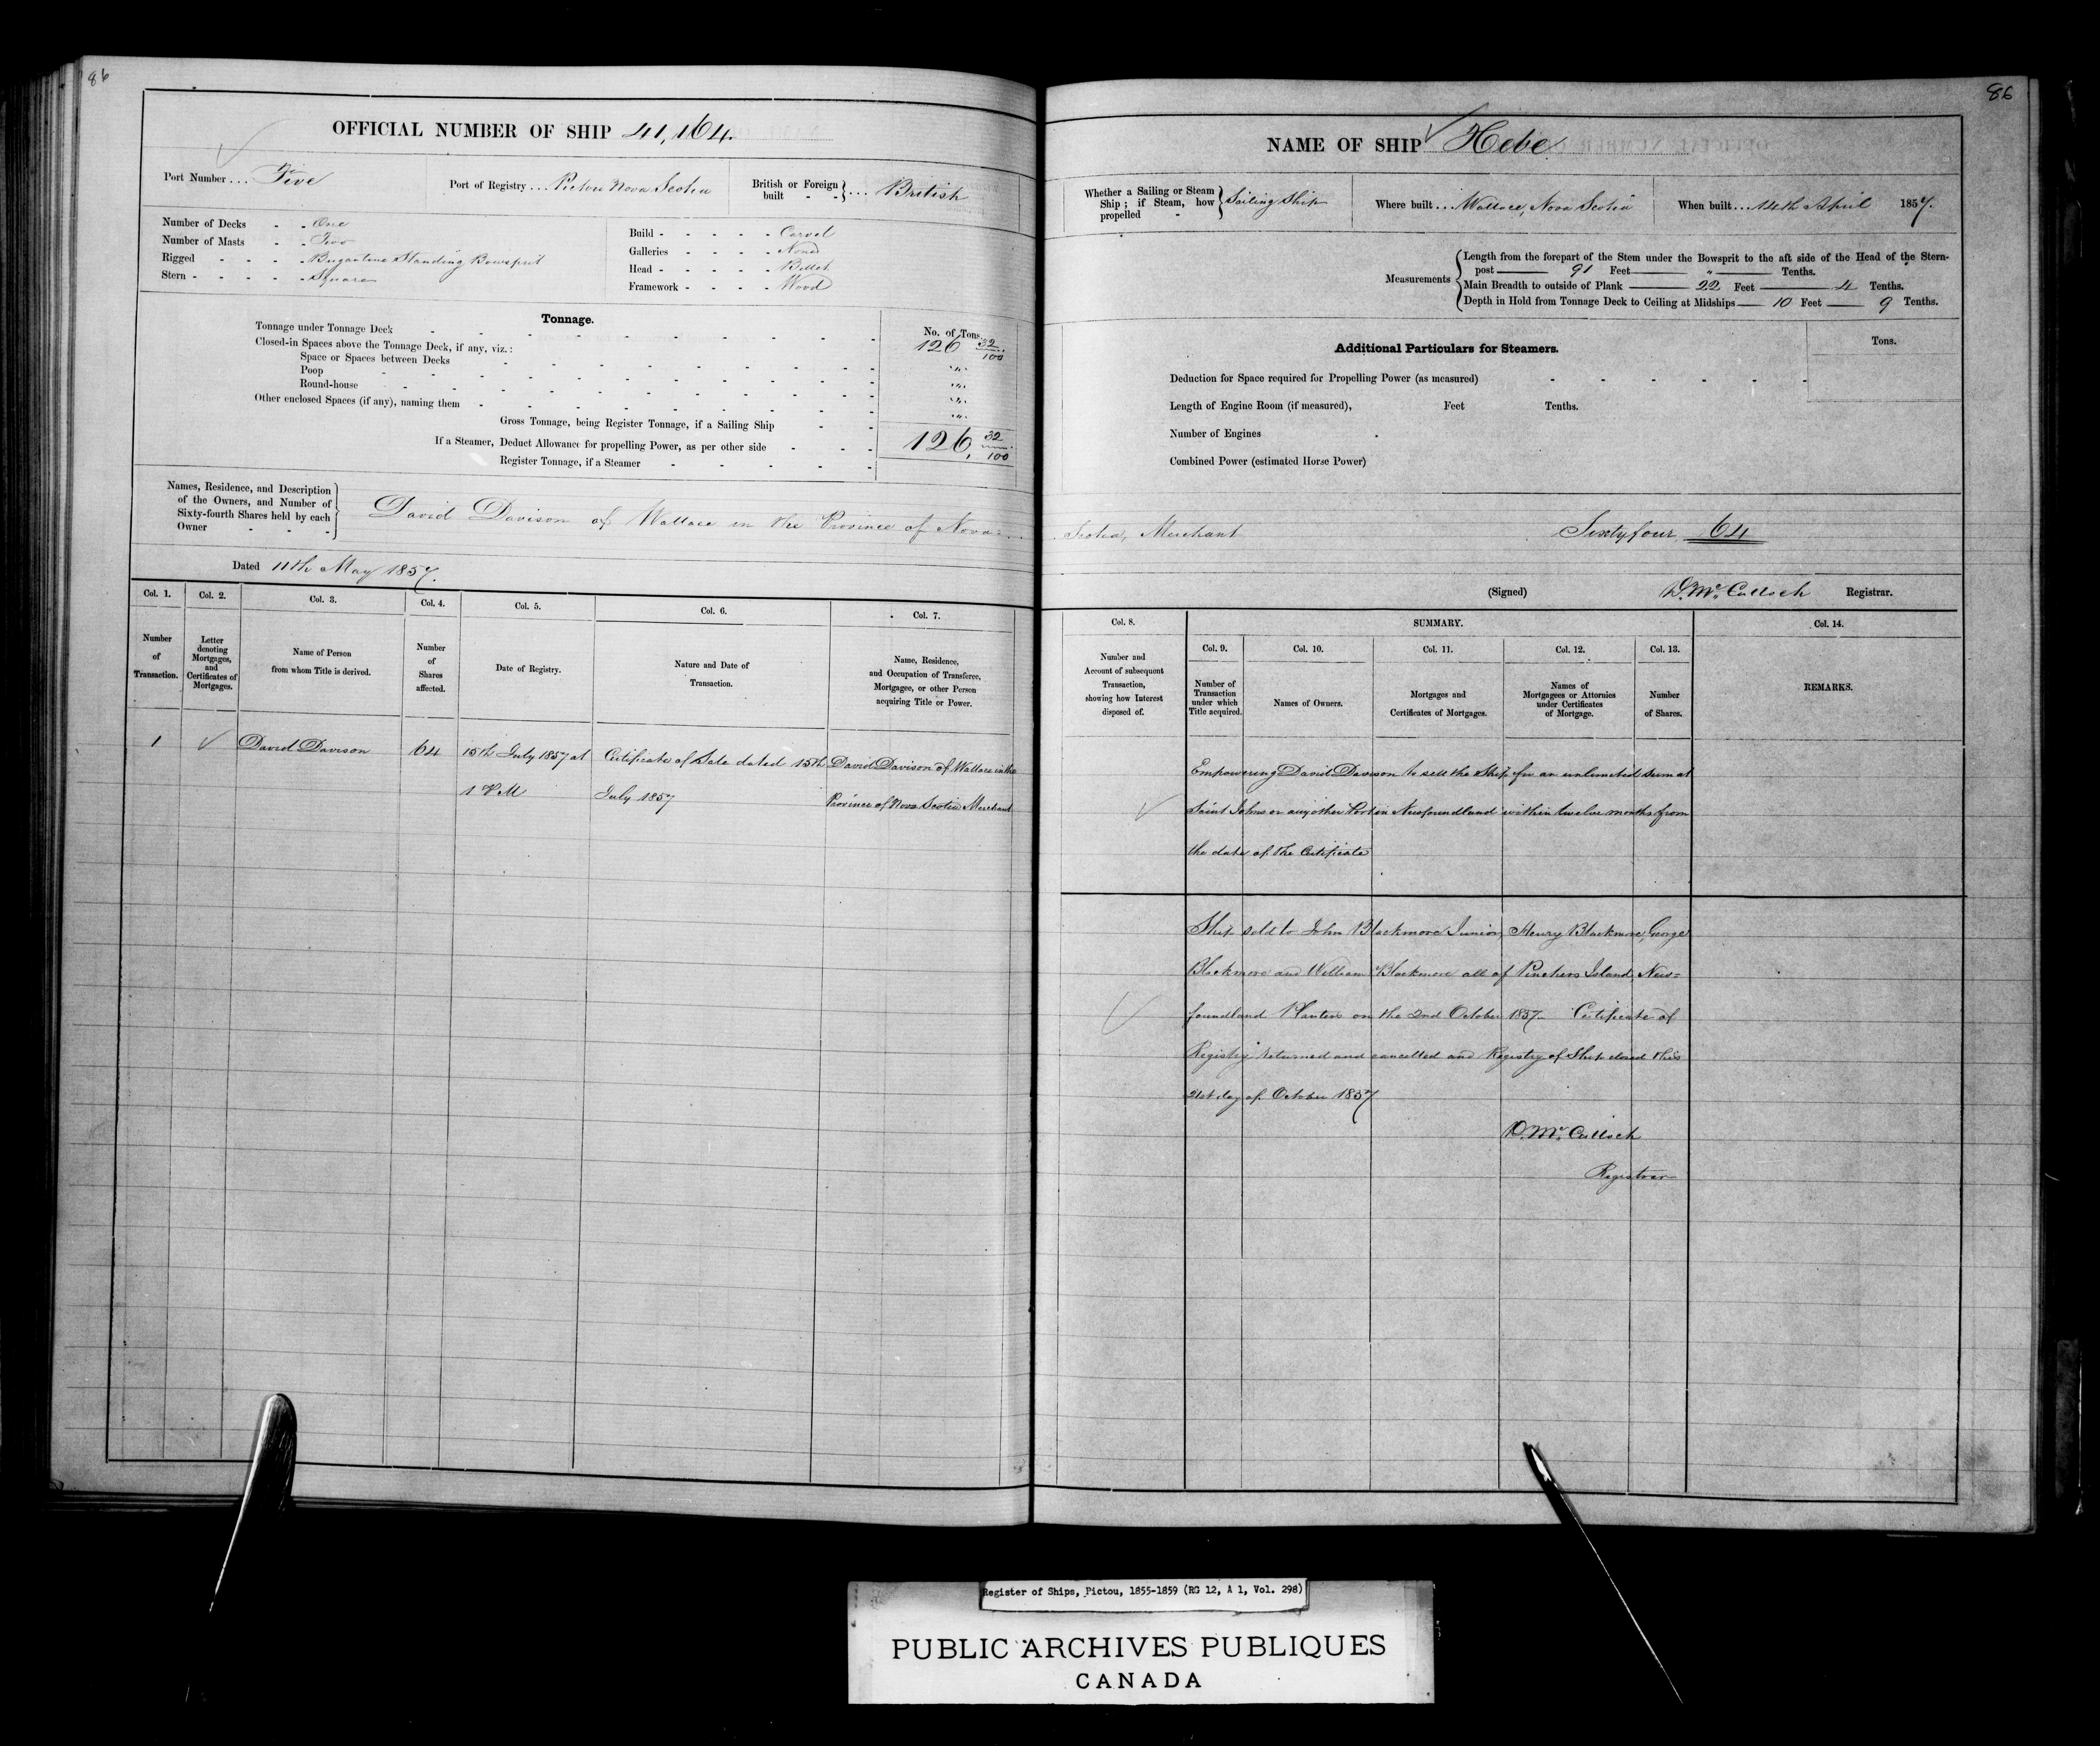 86
OFFICIAL NUMBER OF SHIP 41,164.
Port Number ... Five
Port of Registry ... Pictou Nova Scotia
British or Foreign built - - } ... British
Number of Decks - - One
Number of Masts - - Two
Rigged - - - - Brigantine Standing Bowsprit
Stern - - - - - Square
Build - - - - - Carvel
Galleries - - - - None
Head - - - - - Billet
Framework - - - - Wood
Tonnage.
No. of Tons.
Tonnage under Tonnage Deck 126 32/100
Closed-in Spaces above the Tonnage Deck, if any, viz.:
Space or Spaces between Decks "
Poop "
Round-house "
Other enclosed Spaces (if any), naming them "
Gross Tonnage, being Register Tonnage, if a Sailing Ship 126, 32/100
If a Steamer, Deduct Allowance for propelling Power, as per other side
Register Tonnage, if a Steamer
Names, Residence, and Description
of the Owners, and Number of
Sixty-fourth Shares held by each
Owner
David Davison of Wallace in the Province of Nova=
Dated 11th May 1857.
Col. 1.
Col. 2.
Col. 3.
Col. 4.
Col. 5.
Col. 6.
Col. 7.
Number of Transaction.
Letter denoting Mortgages, and Certificates of Mortgages.
Name of Person from whom Title is derived.
Number of Shares affected.
Date of Registry.
Nature and Date of Transaction.
Name, Residence, and Occupation of Transferee, Mortgagee, or other Person acquiring Title or Power.
1 David Davison 64 15th July 1857 at Certificate of Sale dated 15th David Davison of Wallace in the
1 P M July 1857 Province of Nova Scotia Merchant
86
NAME OF SHIP Hebe
Whether a Sailing or Steam Ship; if Steam, how propelled - } Sailing Ship
Where built ... Wallace, Nova Scotia
When built ... 14th April 1857.
Measurements
Length from the forepart of the Stem under the Bowsprit to the aft side of the Head of the Stern-
post 91 Feet " Tenths.
Main Breadth to outside of Plank 22 Feet 4 Tenths.
Depth in Hold from Tonnage Deck to Ceiling at Midships 10 Feet 9 Tenths.
Additional Particulars for Steamers.
Tons.
Deduction for Space required for Propelling Power (as measured)
Length of Engine Room (if measured), Feet Tenths.
Number of Engines
Combined Power (estimated Horse Power)
Scotia, Merchant Sixty four 64
(Signed) D. Mc Culloch Registrar.
Col. 8.
SUMMARY.
Col. 14.
Col. 9.
Col. 10.
Col. 11.
Col. 12.
Col. 13.
Number and Account of subsequent Transaction, showing how Interest disposed of.
Number of Transaction under which Title acquired.
Names of Owners.
Mortgages and Certificates of Mortgages.
Names of Mortgagees or Attornies under Certificates of Mortgage.
Number of Shares.
REMARKS.
Empowering David Davison to sell the Ship for an unlimited sum at
Saint Johns or any other Port in Newfoundland within twelve months from
the date of the Certificate
Ship sold to John Blackmore Junior, Henry Blackmore, George
Blackmore and William Blackmore all of Pinchers Island, New=
foundland Planters on the 2nd October 1857. Certificate of
Registry returned and cancelled and Registry of Ship closed this
21st day of October 1857
D. Mc Culloch
Registrar
Register of Ships, Pictou, 1855-1859 (RG 12, A 1, Vol. 298)
PUBLIC ARCHIVES PUBLIQUES
CANADA